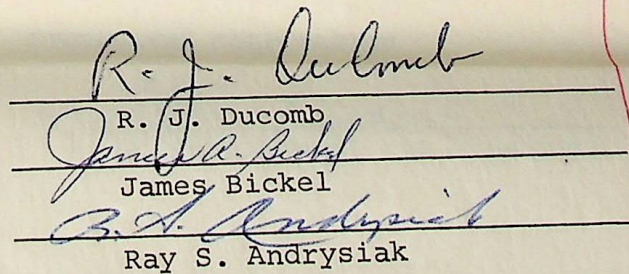 R. J. DuComb
R. J. Ducomb
James A. Bickel
James Bickel
R. S. Andrysiak
Ray S. Andrysiak